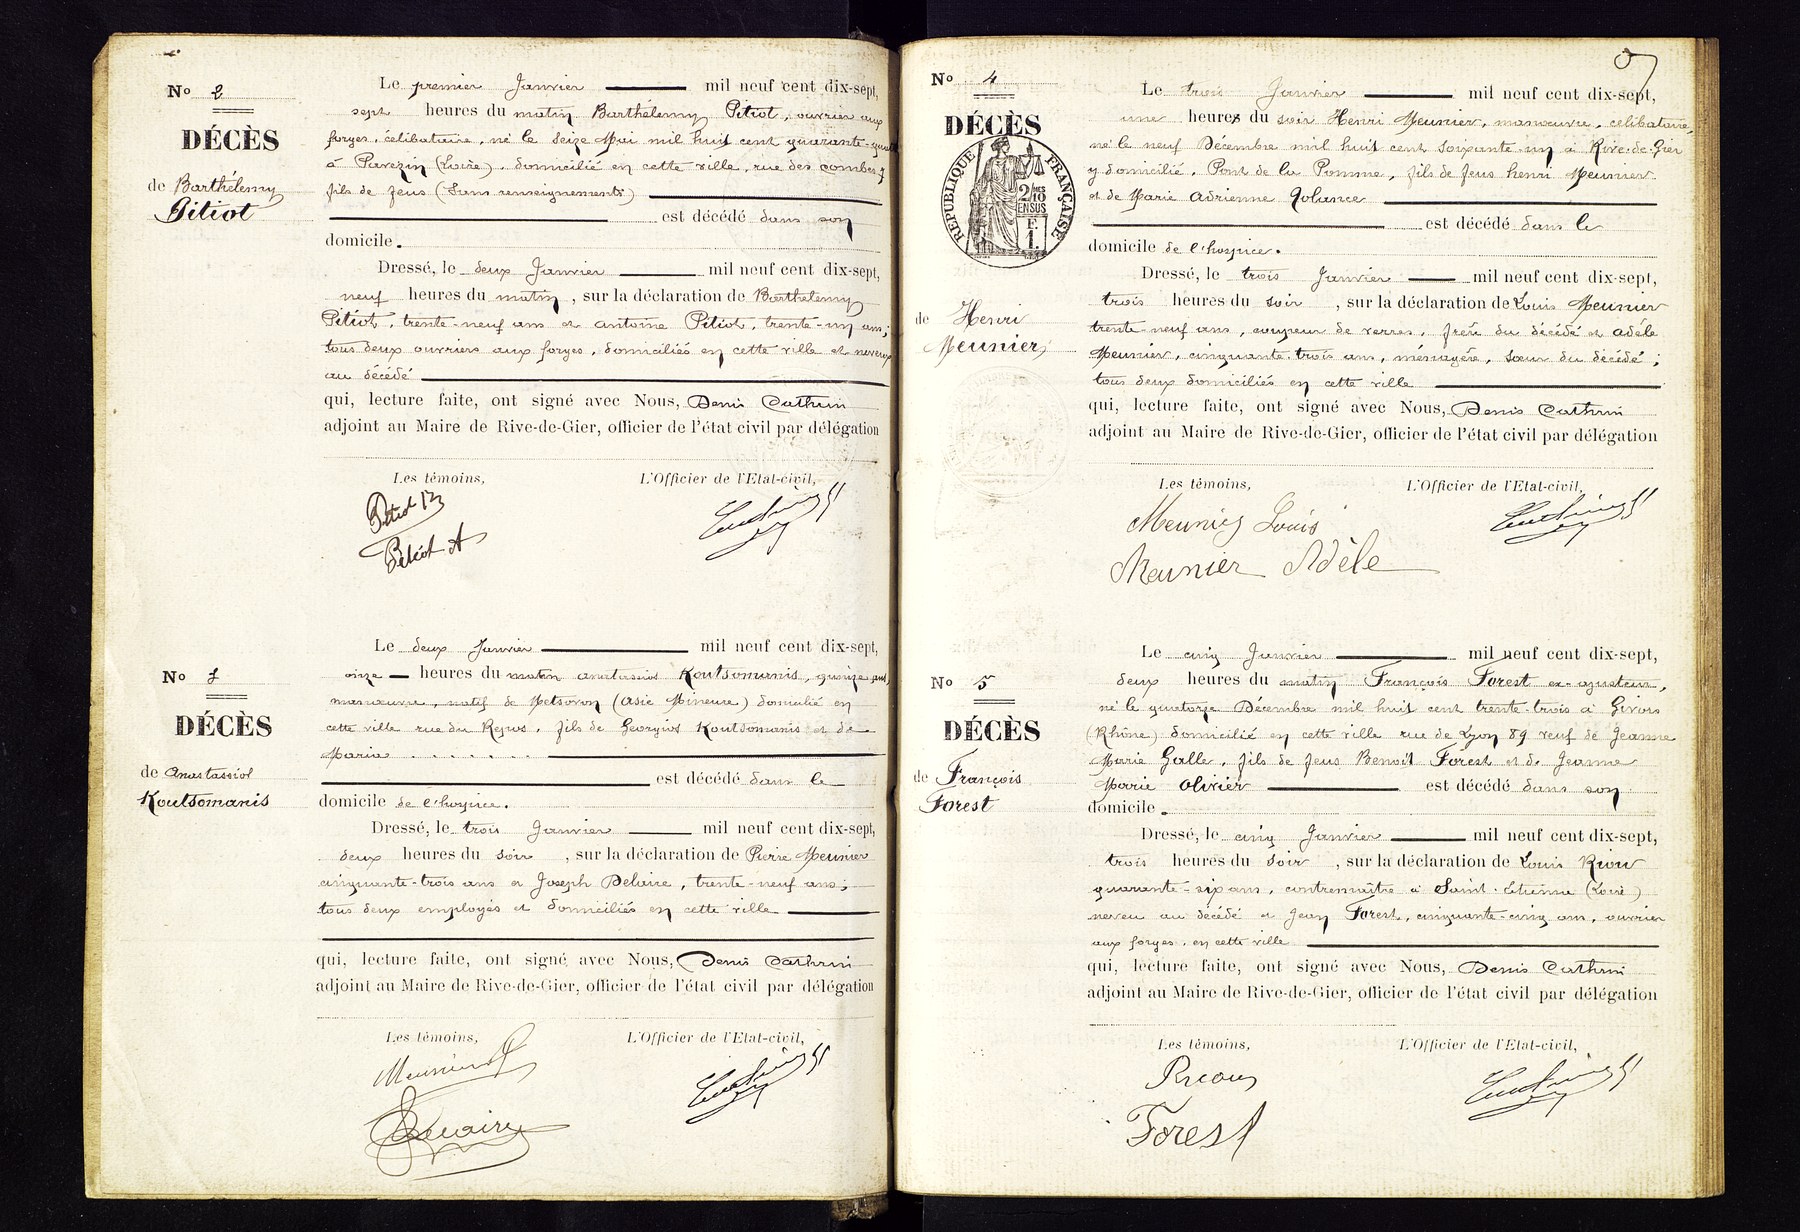 No 2
DÉCÈS
de Barthélemy
Pitiot
Le premier Janvier mil neuf cent dix-sept,
sept heures du matin Barthélemy Pitiot, ouvrier aux
forges, célibataire, né le seize Mai mil huit cent quarante-
à Pavezin (Loire), domicilié en cette ville, rue des combes,
fils de feus (sans renseignements)
est décédé dans son
domicile.
Dressé, le deux Janvier mil neuf cent dix-sept,
neuf heures du matin, sur la déclaration de Barthélemy
Pitiot, trente-neuf ans et antoine Pitiot, trente-un ans;
tous deux ouvriers aux forges, domiciliés en cette ville et neveux
au décédé
qui, lecture faite, ont signé avec Nous, Denis Cathrin
adjoint au Maire de Rive-de-Gier, officier de l'état civil par délégation
Les témoins,
L'Officier de l'Etat-civil,
Pitiot B
Pitiot A
No 3
DÉCÈS
de Anastassiol
Koutsomanis
Le deux Janvier mil neuf cent dix-sept,
onze heures du matin anastassios Koutsomanis, quinze ans,
manœuvre, natif de Metsovon (asie Mineure) domicilié en
cette ville rue du Repos, fils de Georgios Koutsomanis et de
Maria
est décédé dans le
domicile de l'hospice.
Dressé, le trois Janvier mil neuf cent dix-sept,
deux heures du soir, sur la déclaration de Pierre Meunier
cinquante-trois ans et Joseph Delaire, trente-neuf ans;
tous deux employés et domiciliés en cette ville
qui, lecture faite, ont signé avec Nous, Denis Cathrin
adjoint au Maire de Rive-de-Gier, officier de l'état civil par délégation
Les témoins,
L'Officier de l'Etat-civil,
Meunier P
No 4
DÉCÈS
RÉPUBLIQUE FRANÇAISE
2/10
EN SUS
F.
1.
de Henri
Meunier
Le trois Janvier mil neuf cent dix-sept,
une heures du soir Henri Meunier, manœuvre, célibataire,
né le neuf Décembre mil huit cent soixante-un à Rive-de-Gier
y domicilié, Pont de la Pomme, fils de feus henri Meunier
et de Marie adrienne
est décédé dans le
domicile de l'hospice.
Dressé, le trois Janvier mil neuf cent dix-sept,
trois heures du soir, sur la déclaration de Louis Meunier
trente-neuf ans, coupeur de verres, frère du décédé et adèle
Meunier, cinquante-trois ans, ménagère, sœur du décédé;
tous deux domiciliés en cette ville
qui, lecture faite, ont signé avec Nous, Denis Cathrin
adjoint au Maire de Rive-de-Gier, officier de l'état civil par délégation
Les témoins,
L'Officier de l'Etat-civil,
Meunier Louis
Meunier Adèle
No 5
DÉCÈS
de François
Forest
Le cinq Janvier mil neuf cent dix-sept,
deux heures du matin François Forest ex-ajusteur,
né le quatorze Décembre mil huit cent trente-trois à Givors
(Rhône) domicilié en cette ville rue de Lyon 89 veuf de Jeanne
Marie Galle, fils de feus Benoit Forest et de Jeanne
Marie olivier est décédé dans son
domicile.
Dressé, le cinq Janvier mil neuf cent dix-sept,
trois heures du soir, sur la déclaration de Louis Riou
quarante-six ans, contremaître à Saint-Etienne (Loire)
neveu au décédé et Jean Forest, cinquante-cinq ans, ouvrier
aux forges, en cette ville
qui, lecture faite, ont signé avec Nous, Denis Cathrin
adjoint au Maire de Rive-de-Gier, officier de l'état civil par délégation
Les témoins,
L'Officier de l'Etat-civil,
Forest